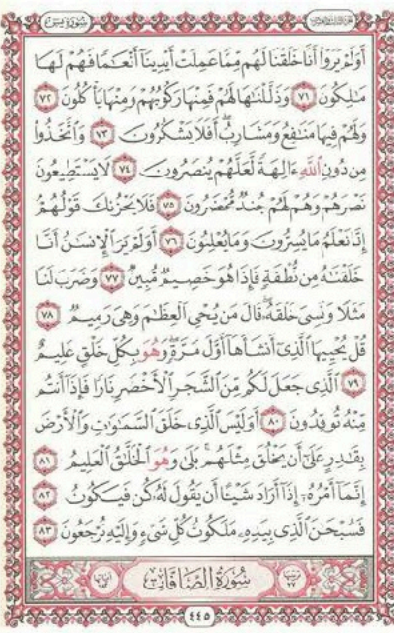 سورة يس
أَوَلَمْ يَرَوْا أَنَّا خَلَقْنَا لَهُم مِّمَّا عَمِلَتْ أَيْدِينَا أَنْعَـٰمًا فَهُمْ لَهَا
مَـٰلِكُونَ ٧١ وَذَلَّلْنَـٰهَا لَهُمْ فَمِنْهَا رَكُوبُهُمْ وَمِنْهَا يَأْكُلُونَ ٧٢
وَلَهُمْ فِيهَا مَنَـٰفِعُ وَمَشَارِبُ أَفَلَا يَشْكُرُونَ ٧٣ وَٱتَّخَذُوا
مِن دُونِ ٱللَّهِ ءَالِهَةً لَّعَلَّهُمْ يُنصَرُونَ ٧٤ لَا يَسْتَطِيعُونَ
نَصْرَهُمْ وَهُمْ لَهُمْ جُندٌ مُّحْضَرُونَ ٧٥ فَلَا يَحْزُنكَ قَوْلُهُمْ
إِنَّا نَعْلَمُ مَا يُسِرُّونَ وَمَا يُعْلِنُونَ ٧٦ أَوَلَمْ يَرَ ٱلْإِنسَـٰنُ أَنَّا
خَلَقْنَـٰهُ مِن نُّطْفَةٍ فَإِذَا هُوَ خَصِيمٌ مُّبِينٌ ٧٧ وَضَرَبَ لَنَا
مَثَلًا وَنَسِىَ خَلْقَهُ قَالَ مَن يُحْىِ ٱلْعِظَـٰمَ وَهِىَ رَمِيمٌ ٧٨
قُلْ يُحْيِيهَا ٱلَّذِى أَنشَأَهَا أَوَّلَ مَرَّةٍ وَهُوَ بِكُلِّ خَلْقٍ عَلِيمٌ
٧٩ ٱلَّذِى جَعَلَ لَكُم مِّنَ ٱلشَّجَرِ ٱلْأَخْضَرِ نَارًا فَإِذَا أَنتُم
مِّنْهُ تُوقِدُونَ ٨٠ أَوَلَيْسَ ٱلَّذِى خَلَقَ ٱلسَّمَـٰوَٰتِ وَٱلْأَرْضَ
بِقَـٰدِرٍ عَلَىٰ أَن يَخْلُقَ مِثْلَهُم بَلَىٰ وَهُوَ ٱلْخَلَّـٰقُ ٱلْعَلِيمُ ٨١
إِنَّمَا أَمْرُهُ إِذَا أَرَادَ شَيْئًا أَن يَقُولَ لَهُ كُن فَيَكُونُ ٨٢
فَسُبْحَـٰنَ ٱلَّذِى بِيَدِهِ مَلَكُوتُ كُلِّ شَىْءٍ وَإِلَيْهِ تُرْجَعُونَ ٨٣
سُورَةُ ٱلصَّافَّاتِ
٤٤٥